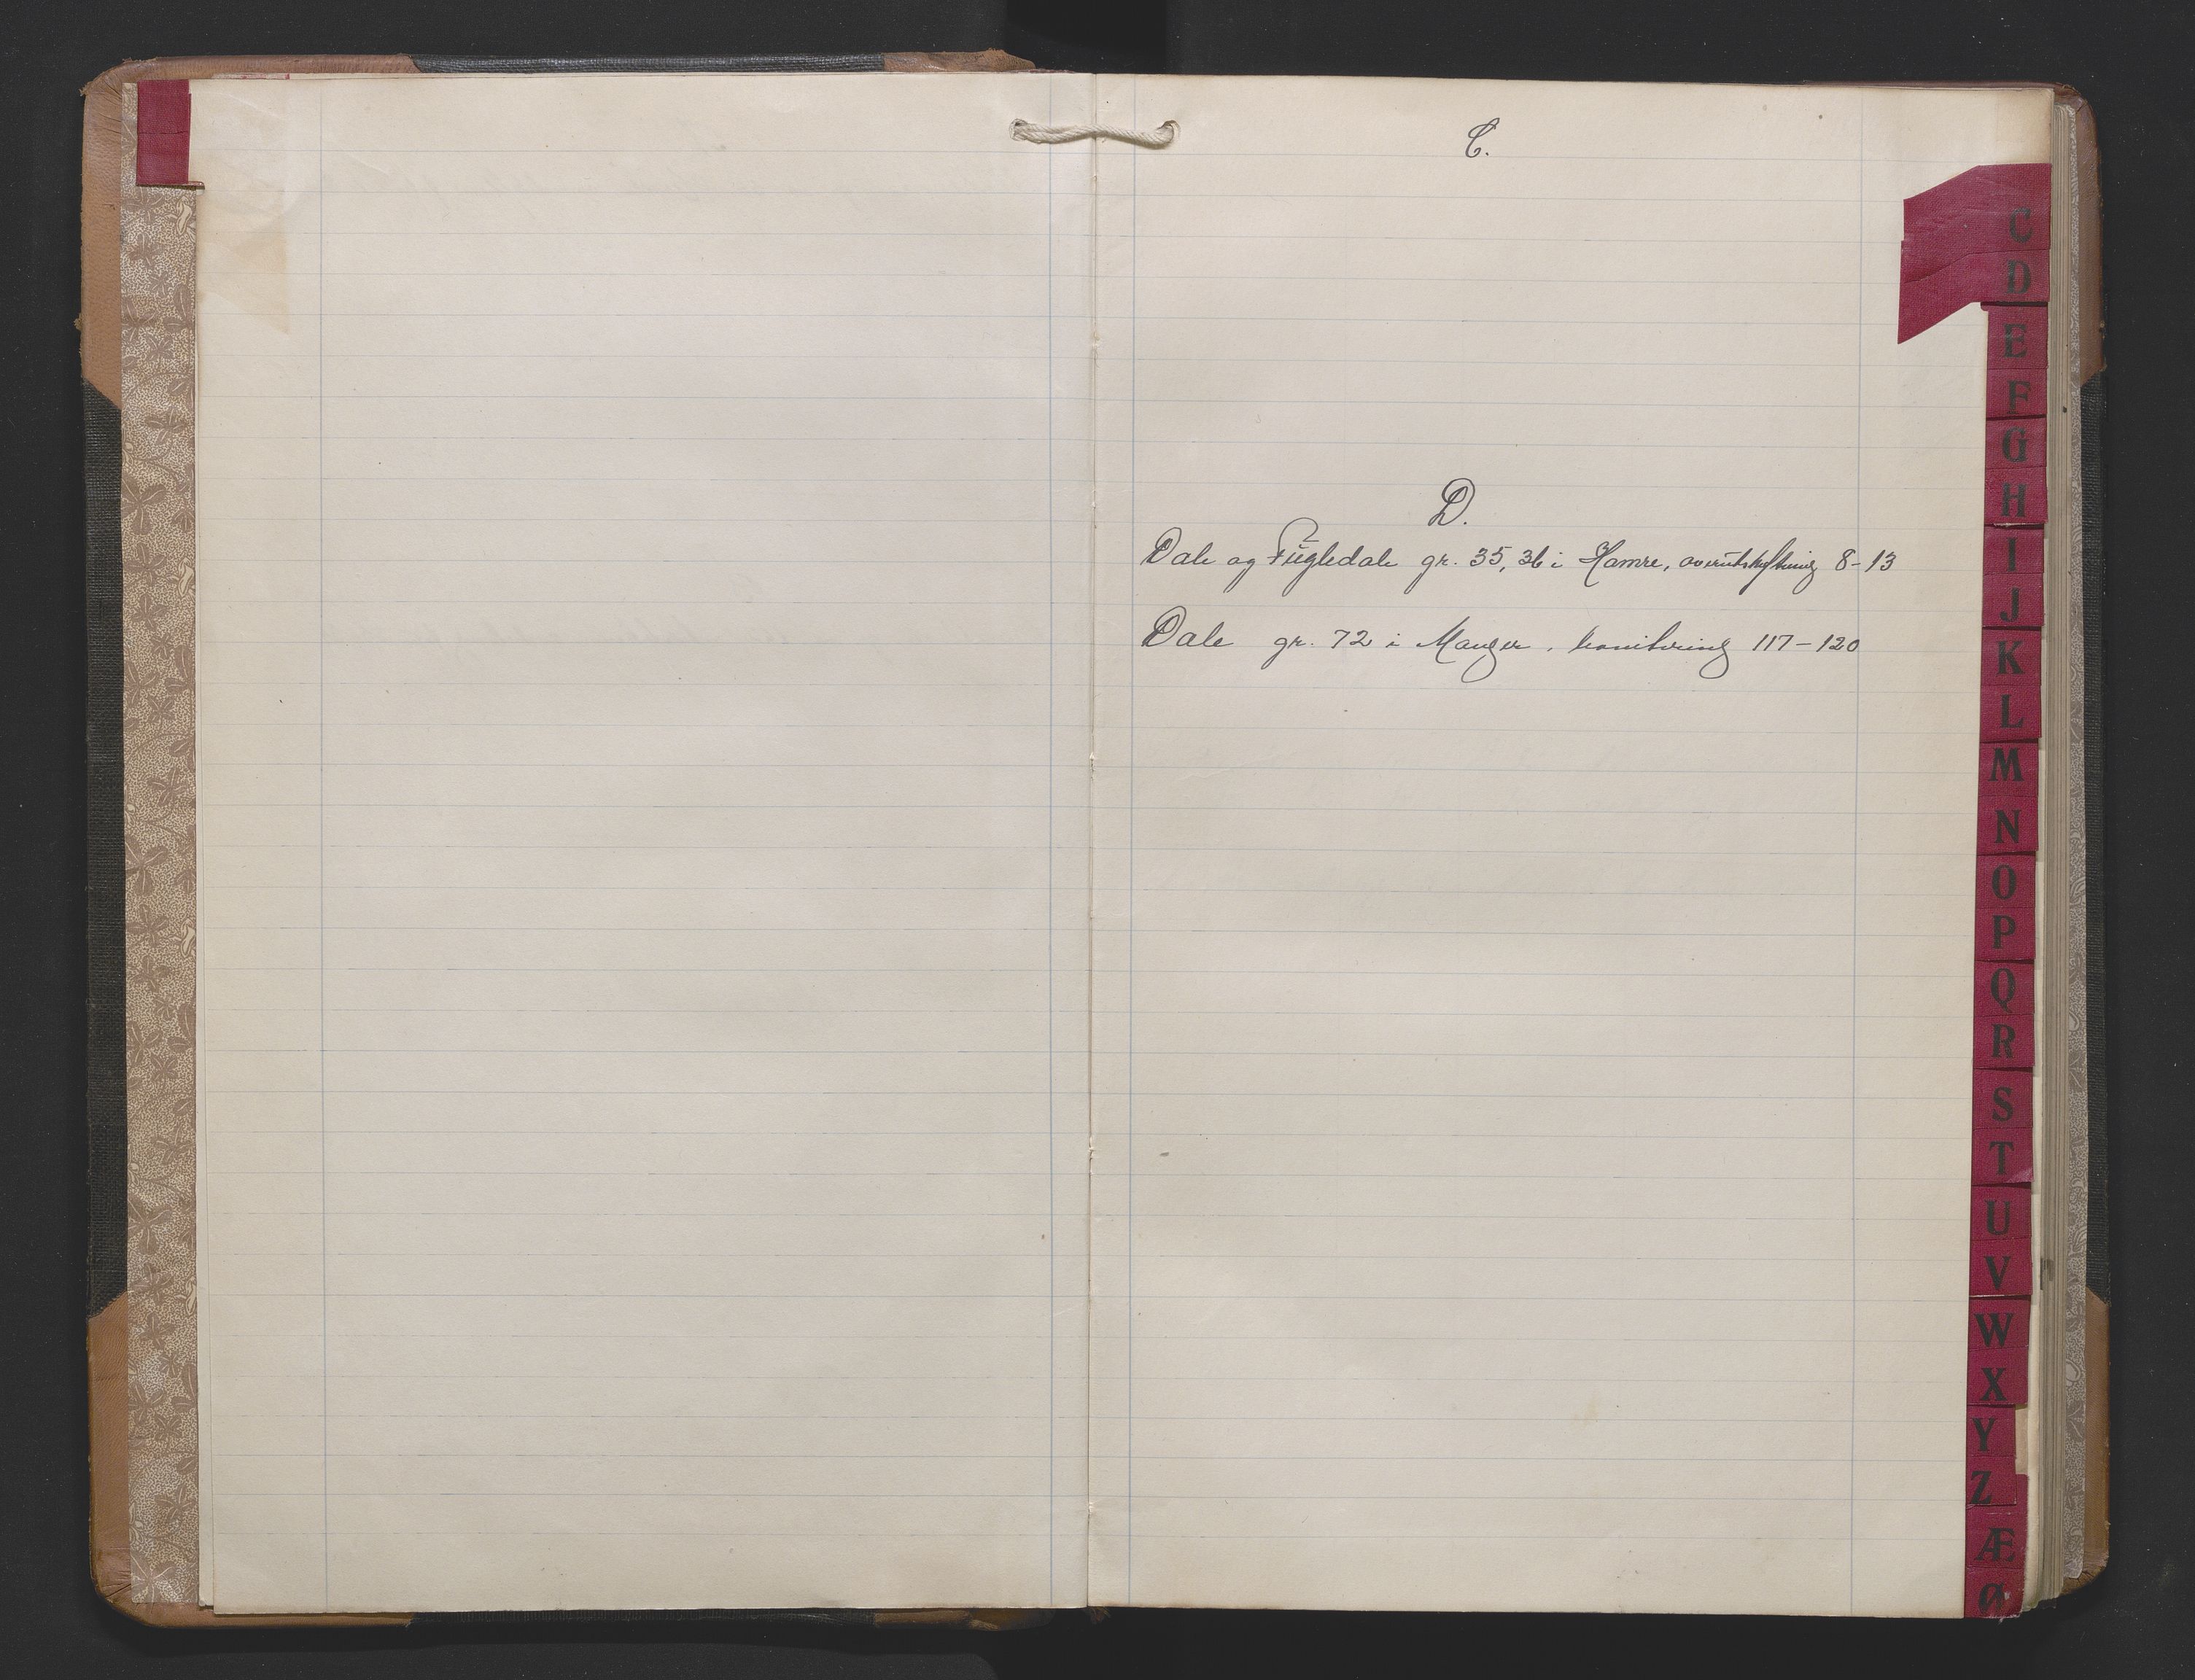 C.
D.
Dale og Fugledale gr. 35, 36 i Hamre, overutskiftning 8-13
Dale gr. 72 i Manger, bonitering 117-120
C
D
E
F
G
H
I
J
K
L
M
N
O
P
Q
R
S
T
U
V
W
X
Y
Z
Æ
Ø